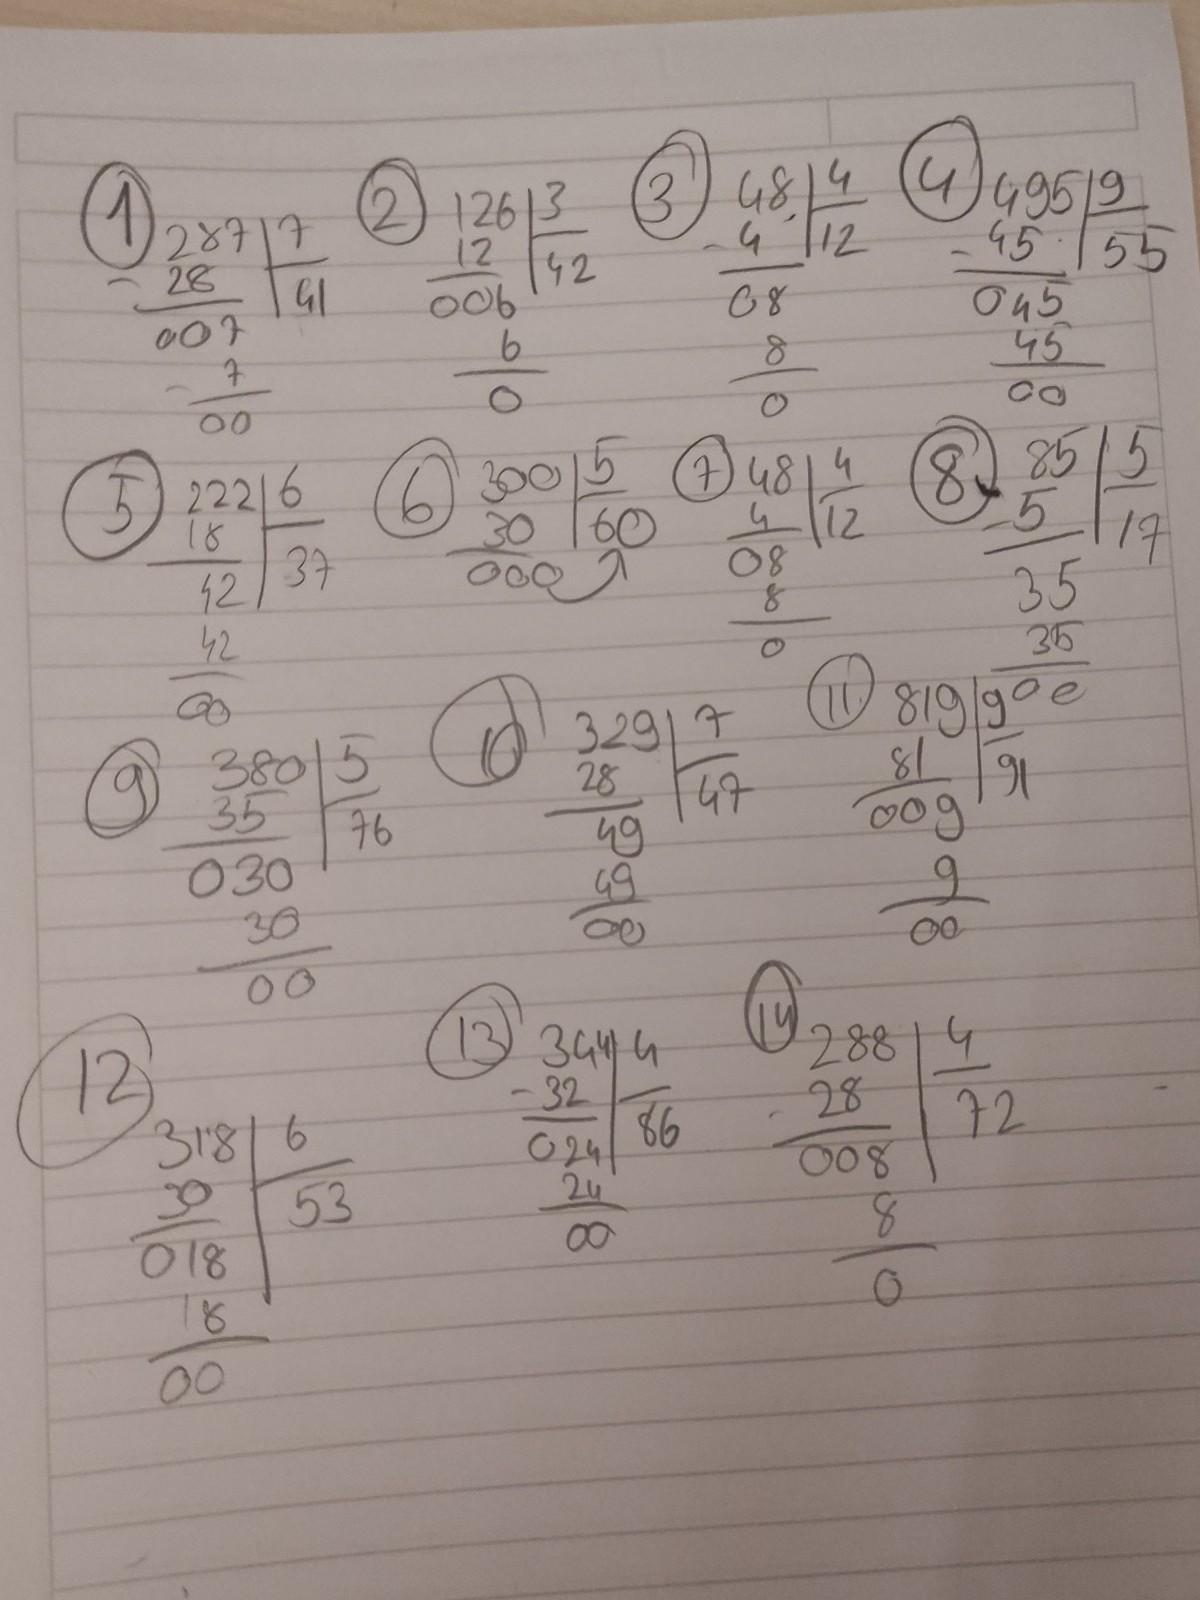 ① 287 | 7
- 28 | 41
007
- 7
00
② 126 | 3
12 | 42
006
6
0
③ 48 | 4
- 4 | 12
08
8
0
④ 495 | 9
- 45 | 55
045
45
00
⑤ 222 | 6
18 | 37
42
42
00
⑥ 300 | 5
30 | 60
000
⑦ 48 | 4
4 | 12
08
8
0
⑧ 85 | 5
- 5 | 17
35
35
00
⑨ 380 | 5
35 | 76
030
30
00
⑩ 329 | 7
28 | 47
49
49
00
⑪ 819 | 9
81 | 91
009
9
00
⑫
318 | 6
30 | 53
018
18
00
⑬ 344 | 4
- 32 | 86
024
24
00
⑭ 288 | 4
- 28 | 72
008
8
0